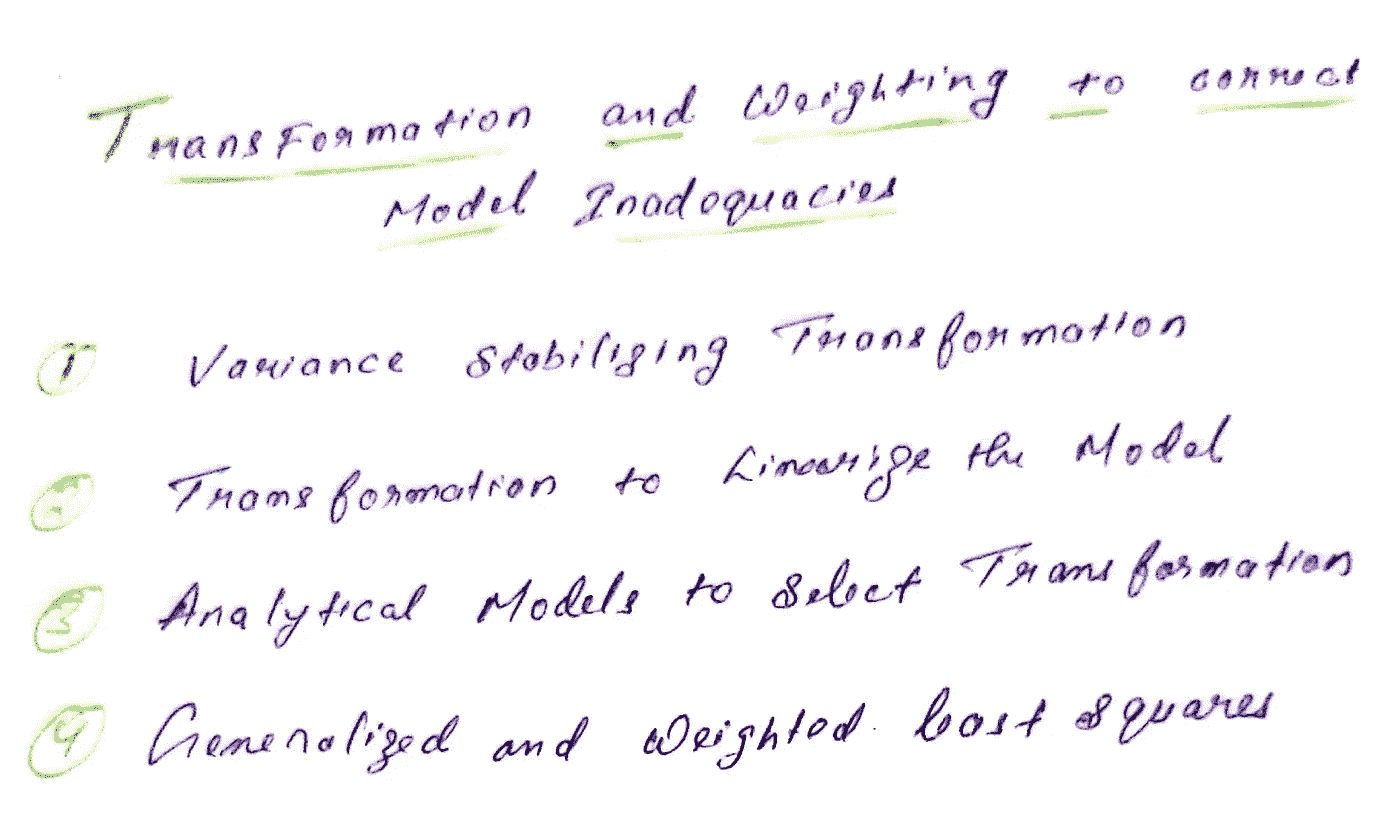 Transformation and Weighting to correct
Model Inadequacies
1 Variance Stabilizing Transformation
2 Transformation to Linearize the Model
3 Analytical Models to Select Transformation
4 Generalized and Weighted least squares